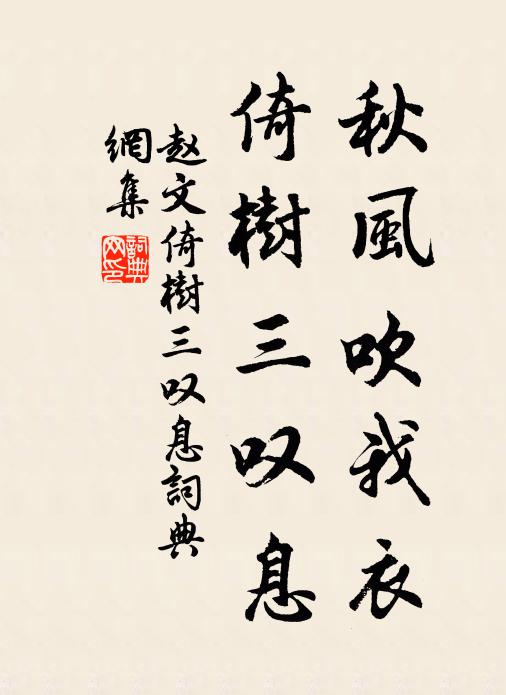 秋風吹我衣
倚樹三叹息
赵文倚樹三叹息詞典
網集
詞典
网印